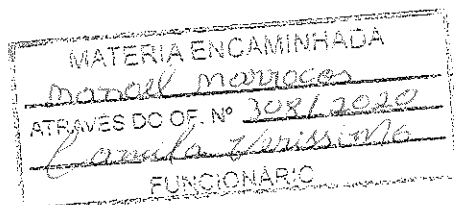 MATERIA ENCAMINHADA
manoel marrocos
ATRAVES DO OF. Nº 308/2020
Camila Verissimo
FUNCIONÁRIO